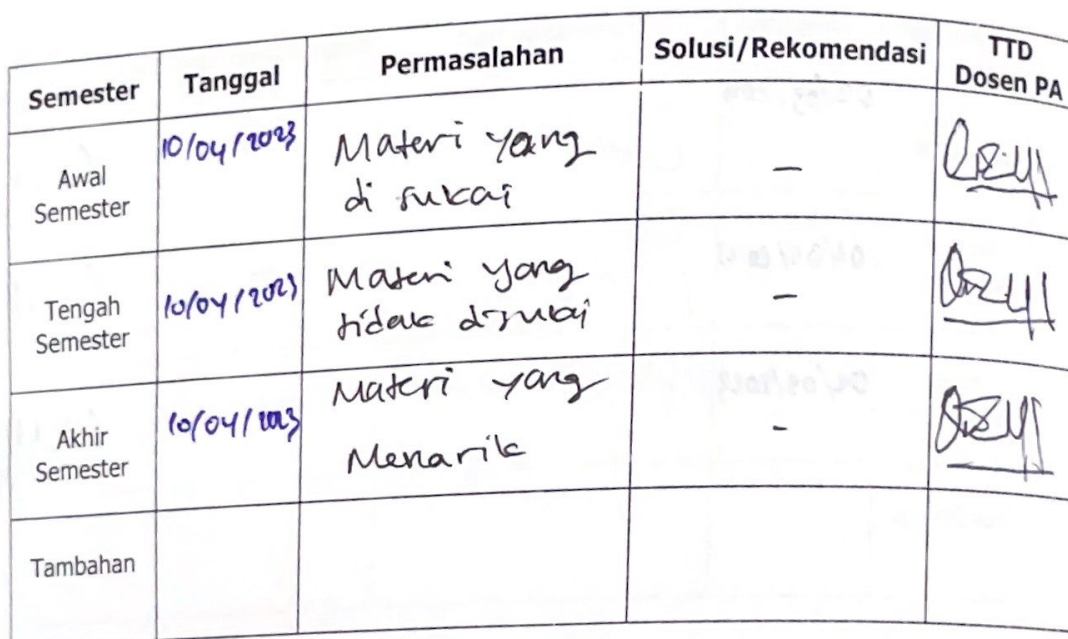 Semester Tanggal Permasalahan Solusi/Rekomendasi TTD
Dosen PA
Awal
Semester
10/04/2023
Materi yang
di sukai
-
Tengah
Semester
10/04/2023
Materi yang
tidak disukai
-
Akhir
Semester
10/04/2023
Materi yang
Menarik
-
Tambahan